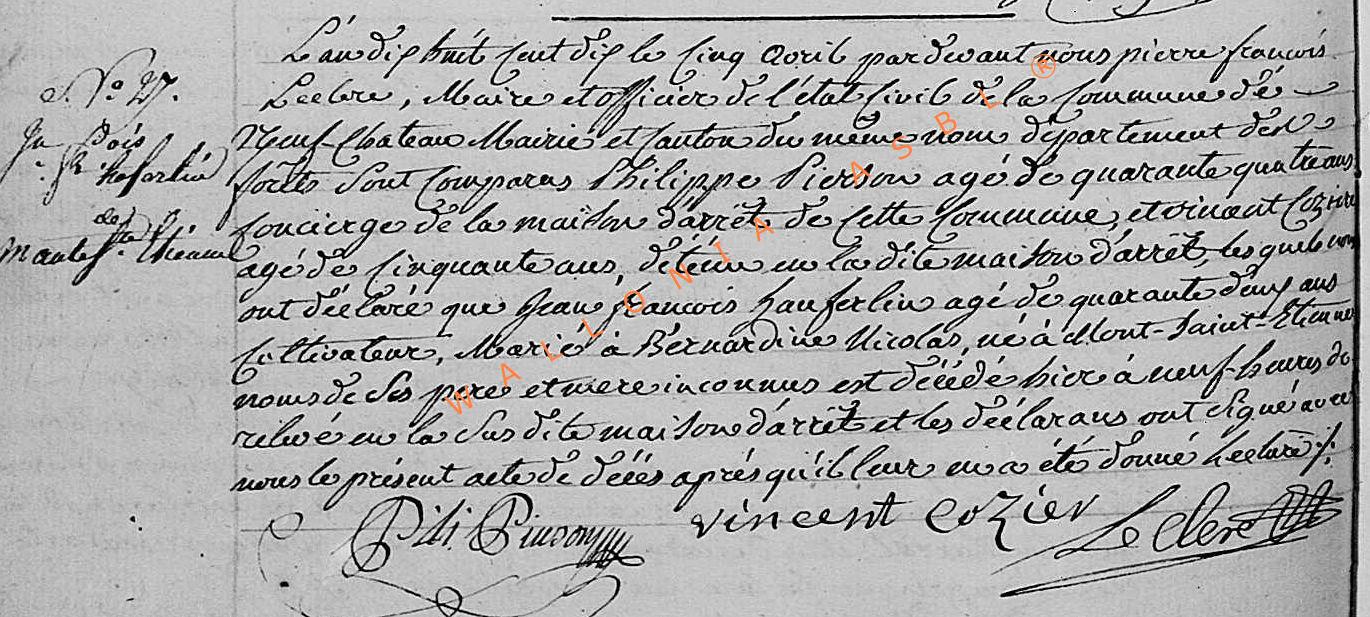 N.o 27.
Jn fcois
hoferlin
de
mont St. Etienne
L'an dix huit cent dix le cinq avril pardevant nous pierre françois
Leclere, Maire et officier de l'état Civil de la Commune de
Neuf-Chateau Mairie et Canton du même nom département des
forêts sont comparus Philippe Pierson agé de quarante quatre ans
concierge de la maison d'arrêt de cette Commune, et vincent Cozier
agé de cinquante ans, détenu en la dite maison d'arrêt, les quels nous
ont déclaré que Jean françois hauferlin agé de quarante deux ans
Cultivateur, Marié à Bernardine Nicolas, né à Mont-Saint-Etienne
noms de ses pere et mere inconnus est décédé hier à neuf-heures de
relevé en la susdite maison d'arrêt et les déclarans ont signé avec
nous le présent acte de décés après qu'il leur en a été donné lecture ./.
Pili. Pierson vincent cozier Leclere
WALLONIA ASBL ®